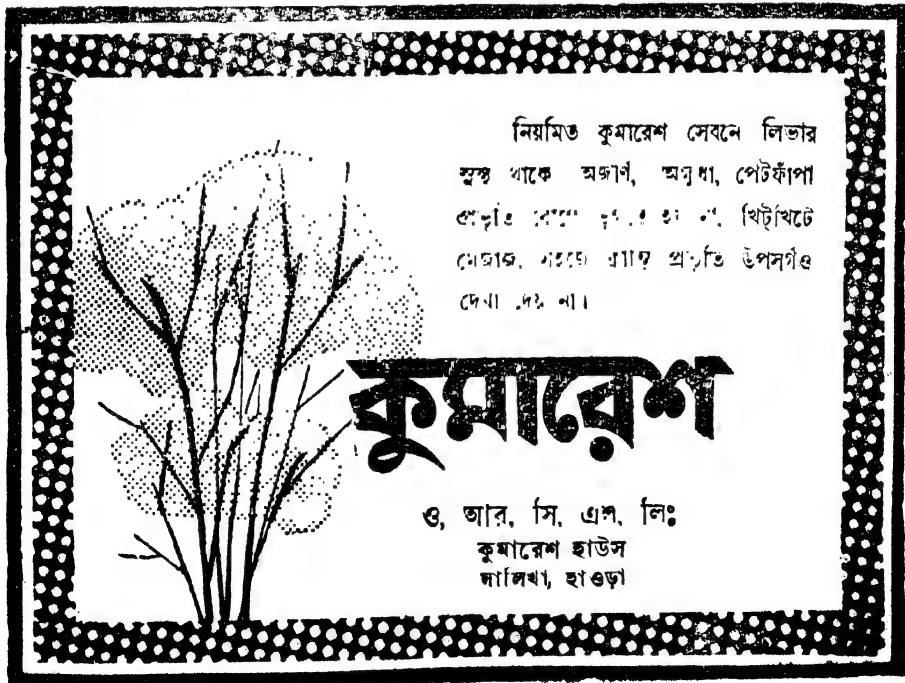 নিয়মিত কুমারেশ সেবনে লিভার
সুস্থ থাকে অজীর্ণ, অক্ষুধা, পেটফাঁপা
প্রভৃতি খিট্‌খিটে
মেজাজ, সহজে ক্লান্তি প্রভৃতি উপসর্গও
দেখা দেয় না।
কুমারেশ
ও, আর, সি, এল, লিঃ
কুমারেশ হাউস
সালিখা, হাওড়া